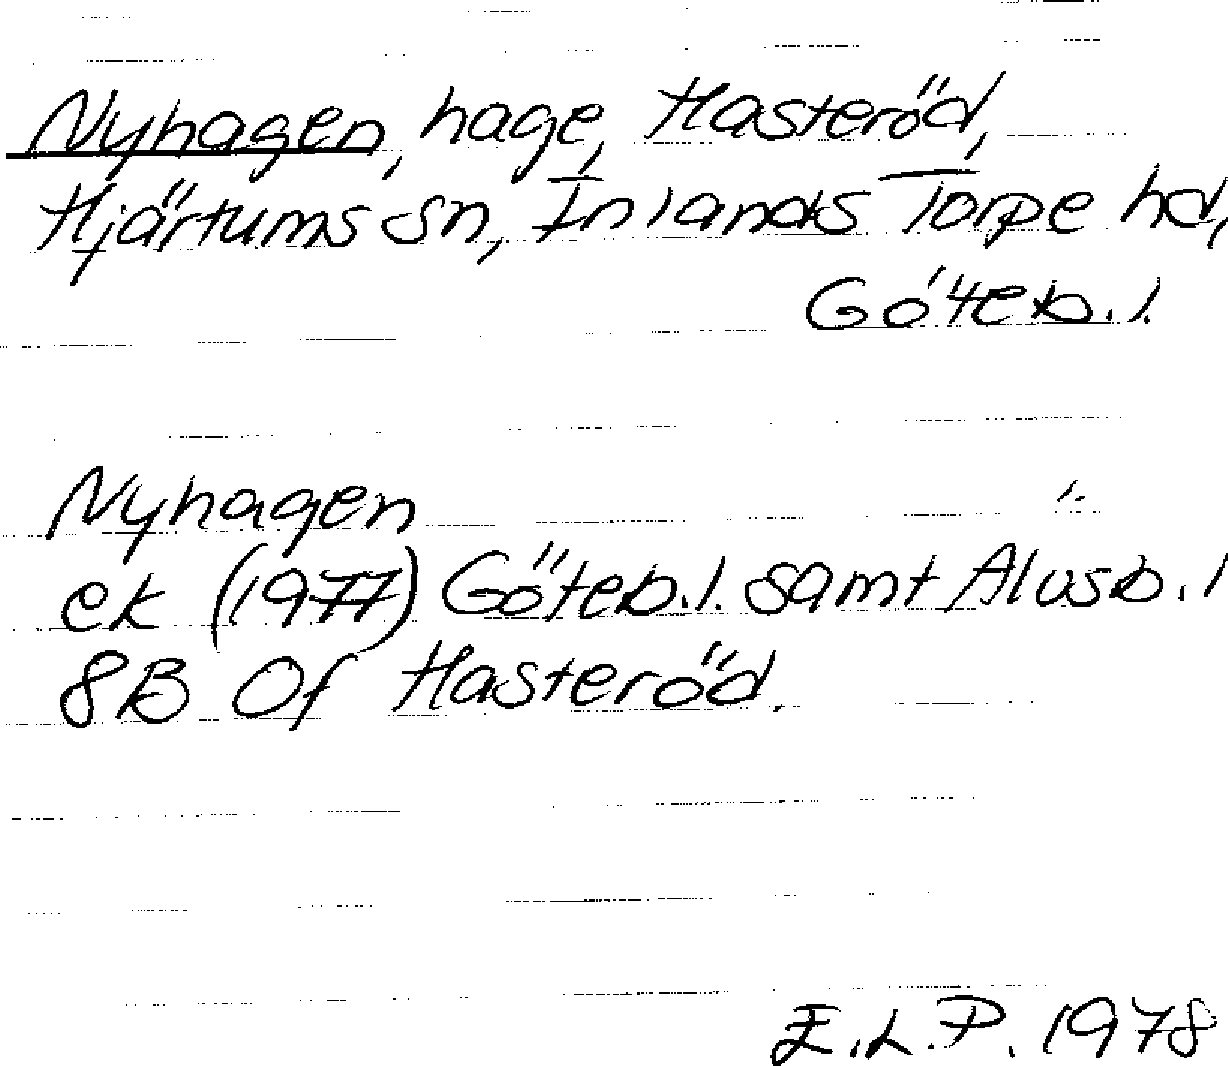 Nyhagen, hage, Hasteröd,
Hjärtums sn, Inlands Torpe hd,
Göteb.l.
Nyhagen
ek (1977) Göteb.l. samt Älvsb.l
8B 0f Hasteröd.
E.L.P. 1978